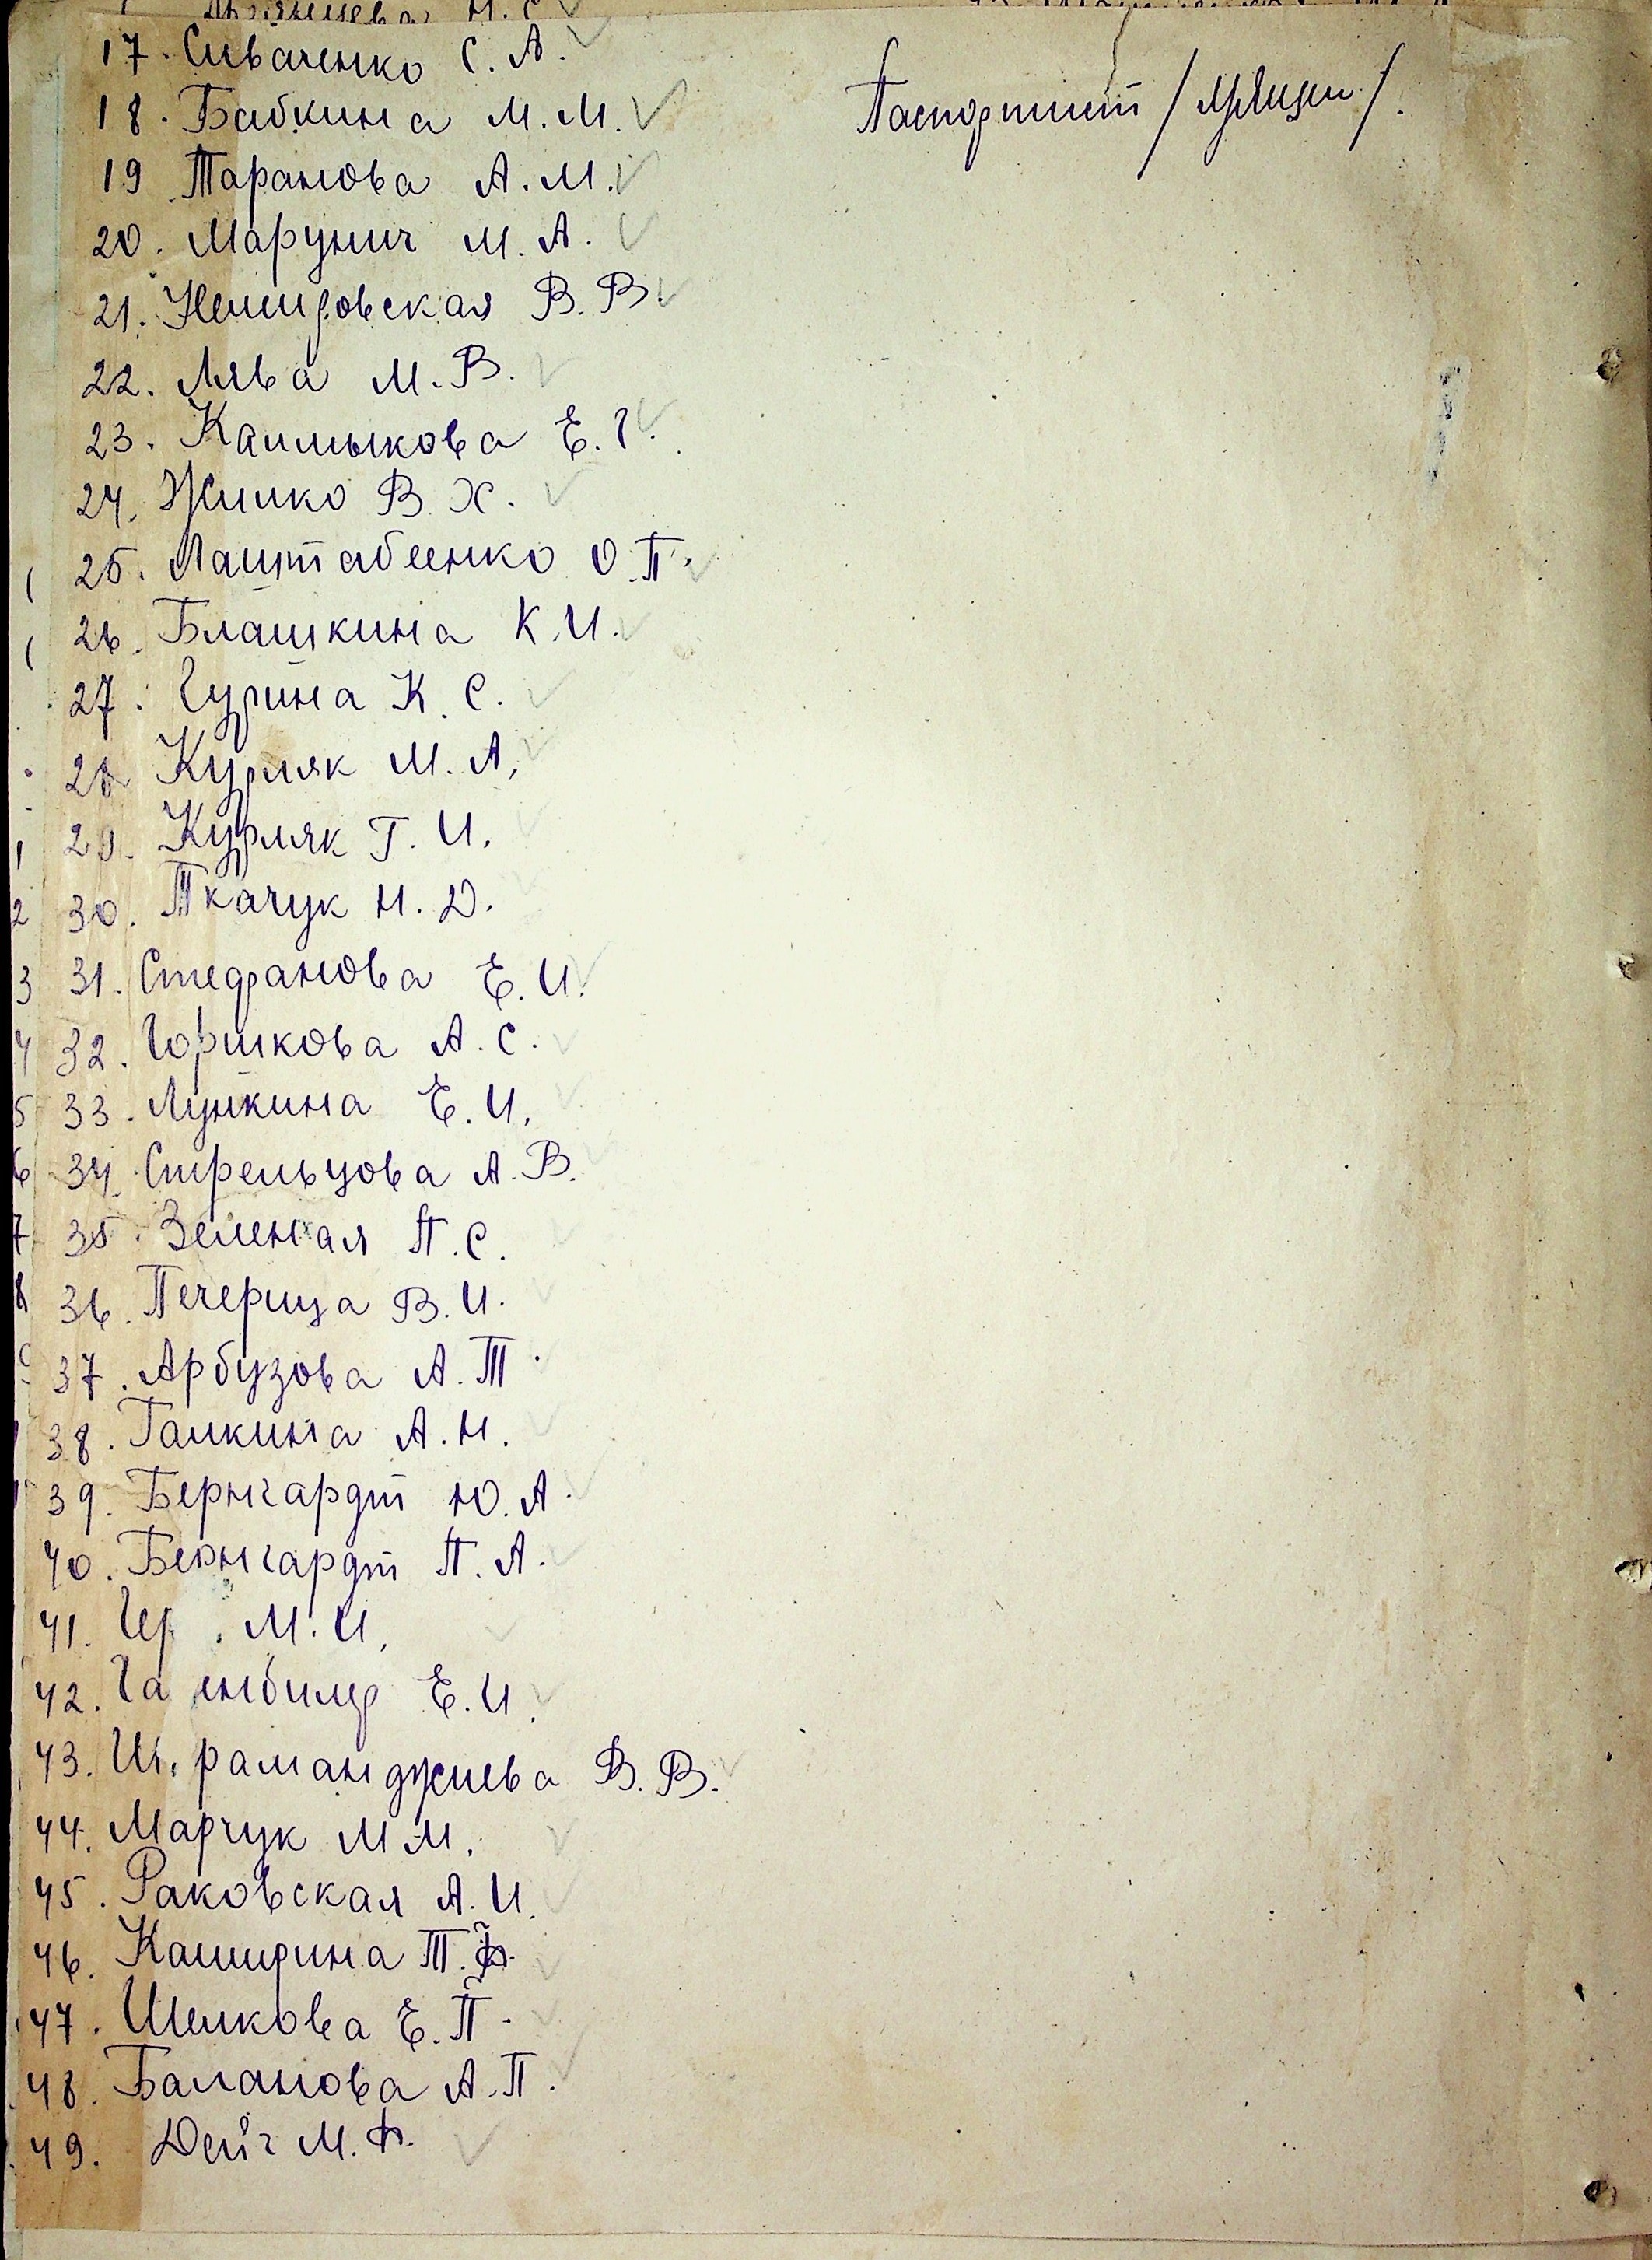 17. Сиваченко С. А.
18. Бабкина М. М.
19 Таранова А. М.
20. Марунич М. А.
21. Немировская В. В.
22. Лява М. В.
23. Калмыкова Е. Г.
24. Жилко В. Х.
25. Лаштабеенко О. П.
26. Блашкина К. И.
27. Гурина К. С.
28 Курляк М. А.
29. Курляк Г. И.
30. Ткачук Н. Д.
31. Стефанова Е. И.
32. Горшкова А. С.
33. Лункина Е. И.
34. Стрельцова А. В.
35. Зеленая П. С.
36. Печерица В. И.
37. Арбузова А. Т.
38. Галкина А. Н.
39. Бернгардт Ю. А.
40. Бернгардт П. А.
41. М. И.
42. Е. И.
43. В. В.
44. Марчук М М.
45. Раковская А. И.
46. Каширина Т. Ф.
47. Шелкова Е. П.
48. Баланова А. П.
49. Дейч М. Ф.
Паспортист